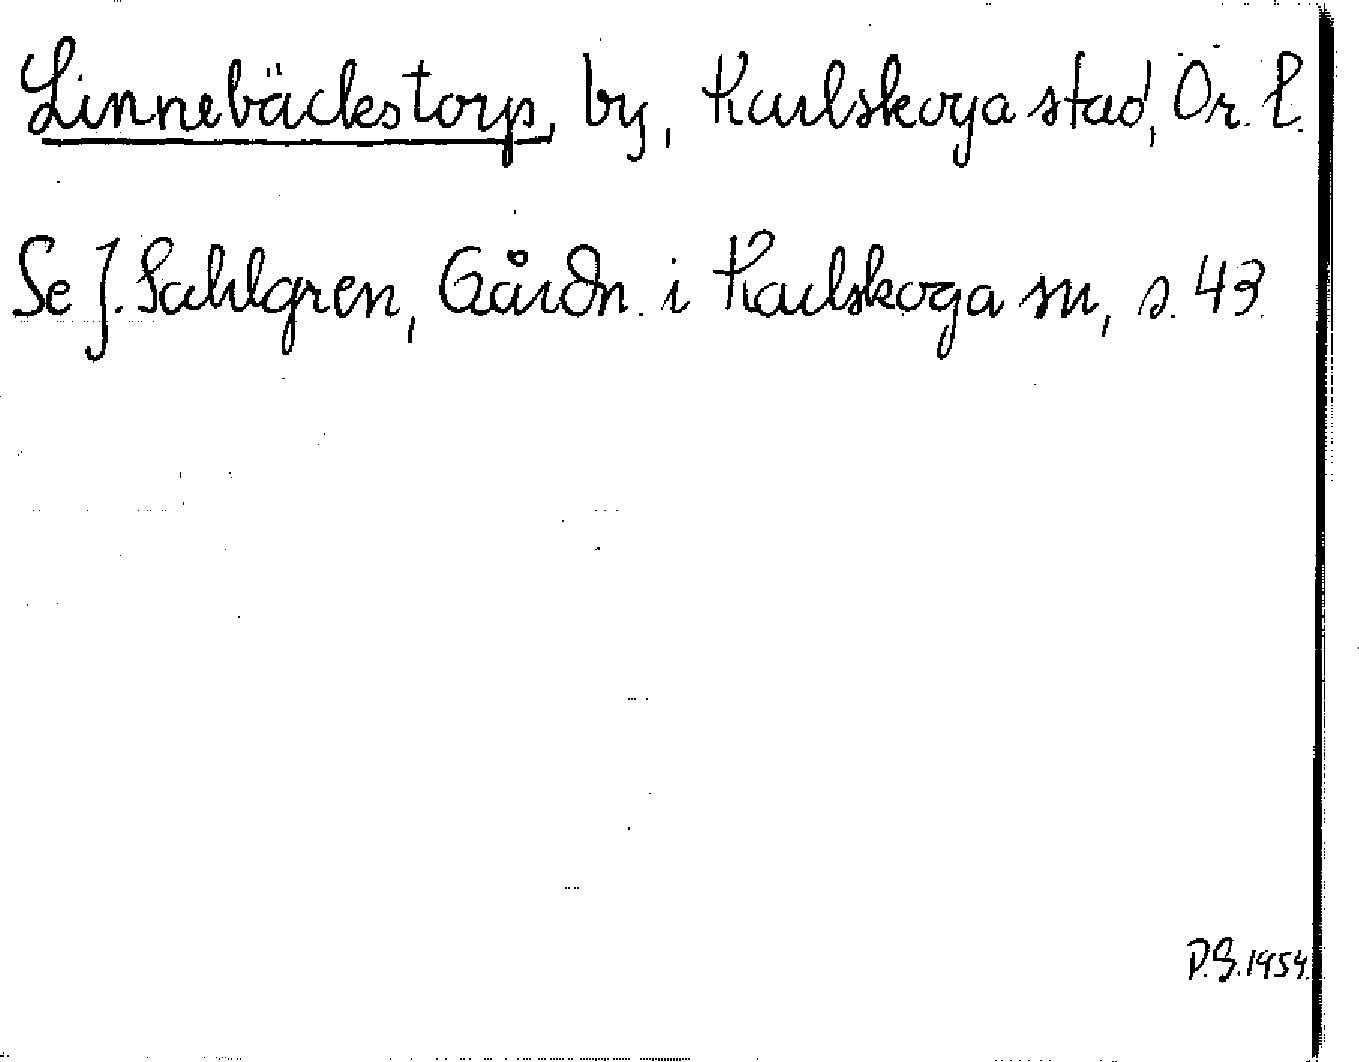 Linnebäckstorp, by, Karlskoga stad, Ör. l.
Se J. Sahlgren, Gårdn. i Karlskoga sn, s. 43.
D.S. 1954.